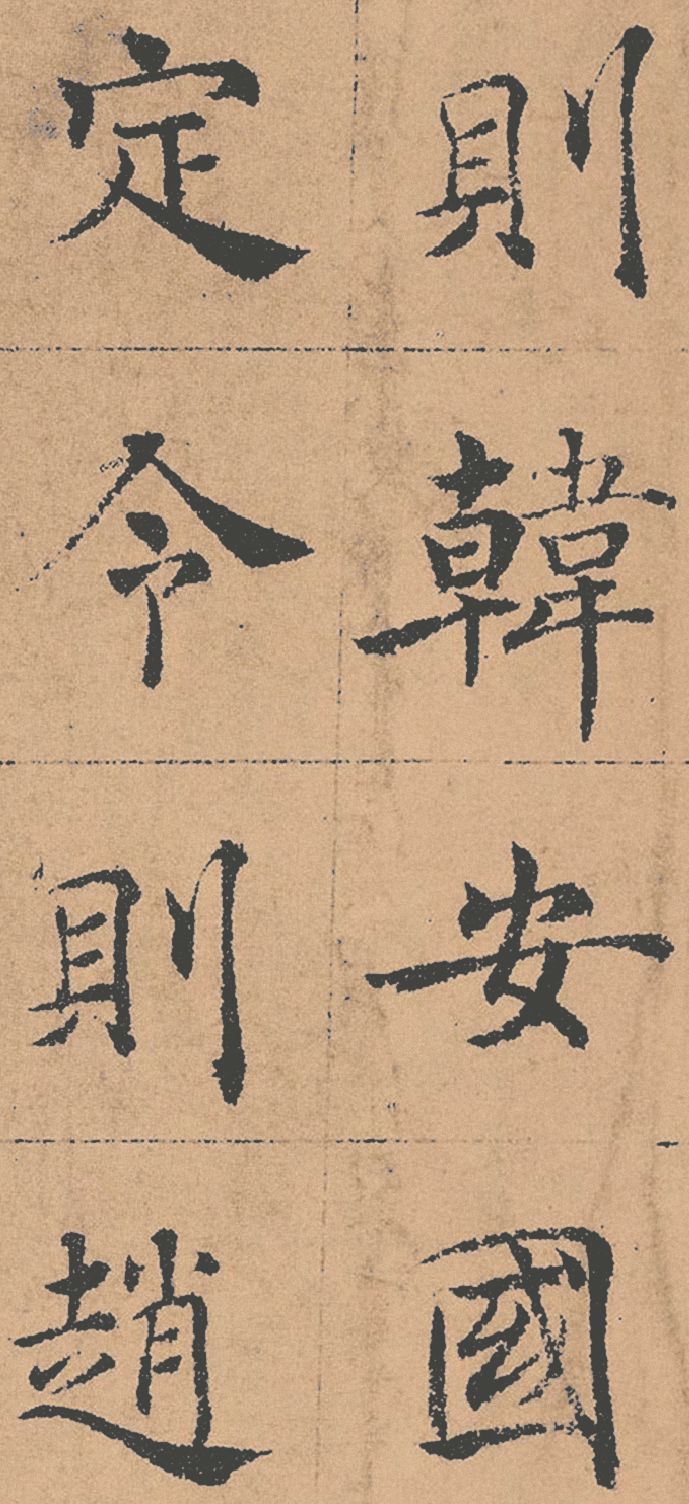 則韓安國
定令則趙